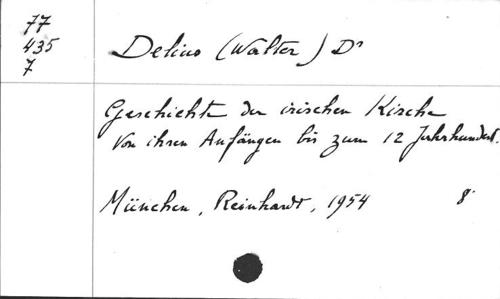 77
435
7
Delius (Walter) Dr
Geschichte der irischen Kirche
von ihren Anfängen bis zum 12 Jahrhundert.
München, Reinhardt, 1954 8°